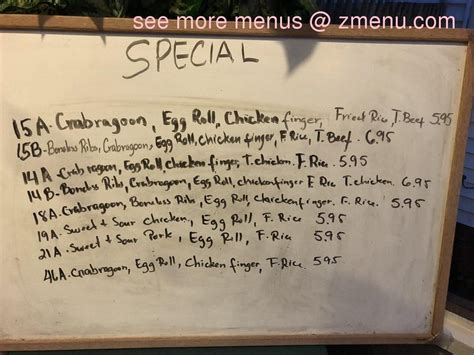 see more menus @ zmenu.com
SPECIAL
15A. Crabragoon, Egg Roll, Chicken finger, Fried Rice, T. Beef 5.95
15B- Boneless Ribs, Crabragoon, Egg Roll, Chicken finger, F. Rice, T. Beef. 6.95
14A. Crab ragoon, Egg Roll, Chicken finger, T. chicken. F. Rice. 5.95
14B. Boneless Ribs, Crabragoon, Egg Roll, chicken finger F. Rice T. chicken. 6.95
18A. Crabragoon, Boneless Ribs, Egg Roll, Chicken finger. F. Rice. 5.95
19A. Sweet + Sour Chicken, Egg Roll, F. Rice 5.95
21A. Sweet + Sour Pork, Egg Roll, F. Rice 5.95
46A. Crabragoon, Egg Roll, Chicken finger, F. Rice 5.95